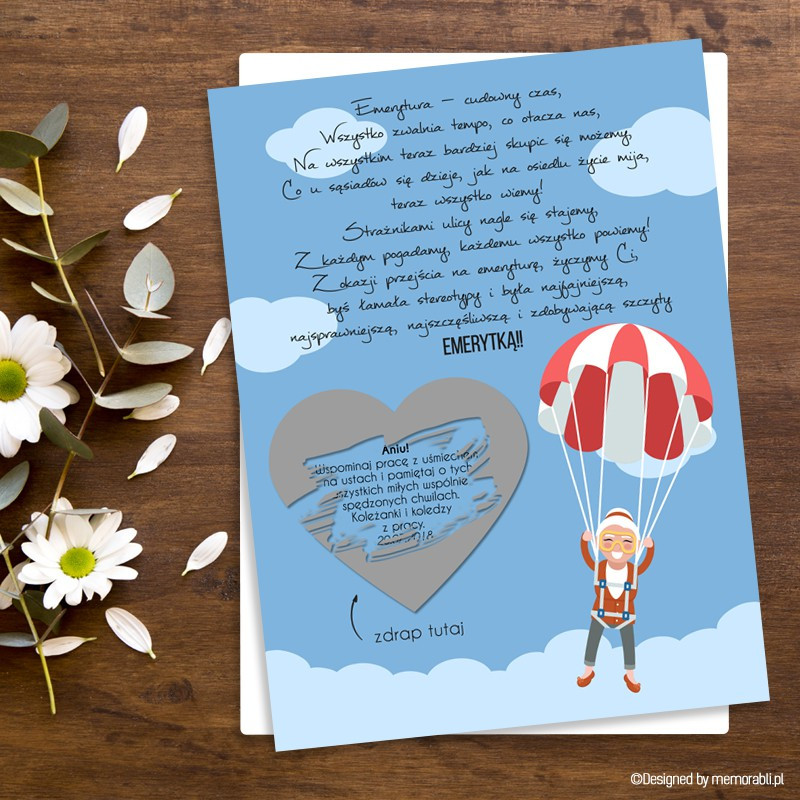 Emerytura – cudowny czas,
Wszystko zwalnia tempo, co otacza nas,
Na wszystkim teraz bardziej skupic się możemy,
Co u sąsiadów się dzieje, jak na osiedlu życie mija,
teraz wszystko wiemy!
Strażnikami ulicy nagle się stajemy,
Z każdym pogadamy, każdemu wszystko powiemy!
Z okazji przejścia na emeryturę, życzymy Ci,
byś łamała stereotypy i była najfajniejszą,
najsprawniejszą, najszczęśliwszą i zdobywającą szczyty
EMERYTKĄ!!
Aniu!
Wspominaj pracę z uśmiechem
na ustach i pamiętaj o tych
wszystkich miłych wspólnie
spędzonych chwilach.
Koleżanki i koledzy
z pracy.
zdrap tutaj
©Designed by memorabli.pl